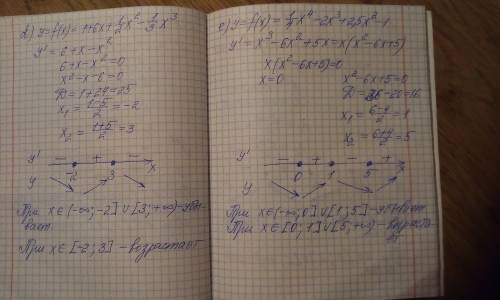 d) y=f(x)=1+6x+1/2x²-1/3x³
y'=6+x-x²
6+x-x²=0
x²-x-6=0
D=1+24=25
x₁=(1-5)/2=-2
x₂=(1+5)/2=3
y' - + - x
-2 3
y
При x∈(-∞;-2]∪[3;+∞)-убы-
вает.
При x∈[-2;3] -возрастает
e) y=f(x)=1/4x⁴-2x³+2,5x²-1
y'=x³-6x²+5x=x(x²-6x+5)
x(x²-6x+5)=0
x=0 x²-6x+5=0
D=36-20=16
x₁=(6-4)/2=1
x₂=(6+4)/2=5
y' - + - + x
0 1 5
y
При x∈(-∞;0]∪[1;5]-убывает.
При x∈[0;1]∪[5;+∞)-возраста-
ет